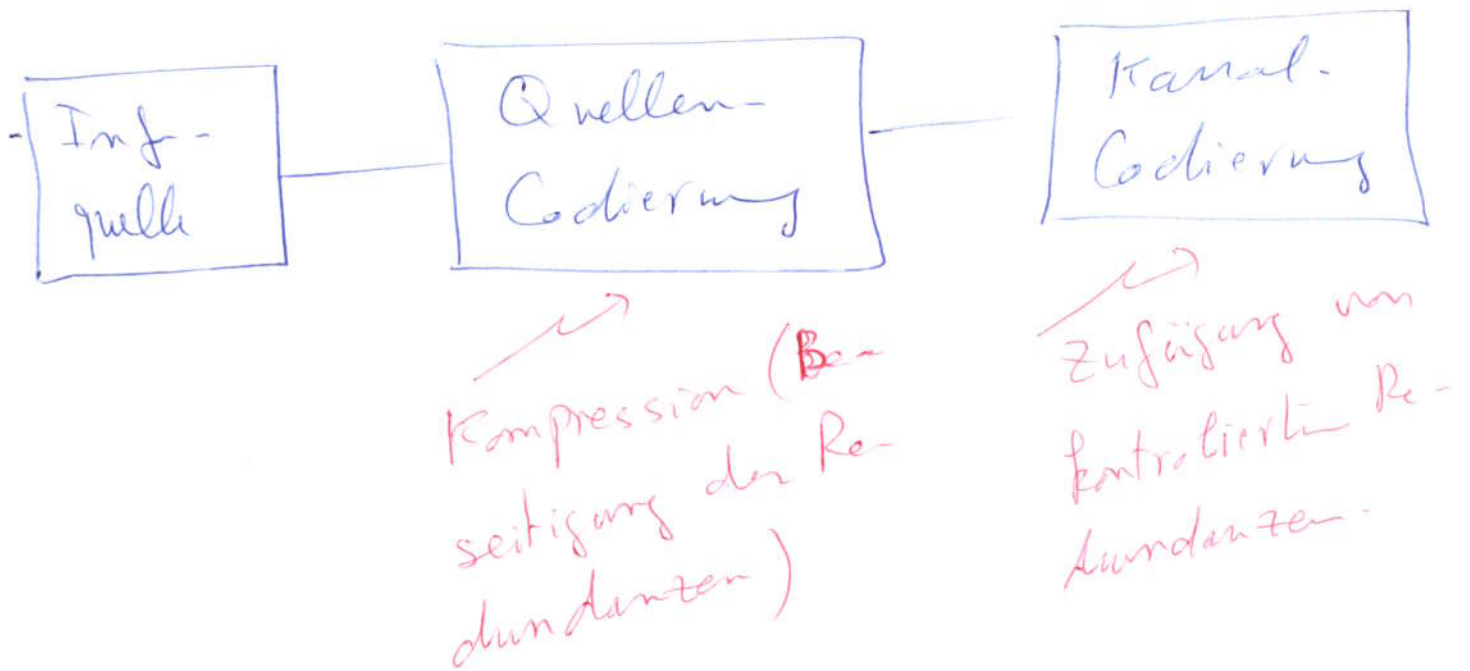 Inf-
quelle
Quellen-
Codierung
Kanal-
Codierung
Kompression (Be-
seitigung der Re-
dundanzen)
Zufügung von
kontrolierten Re-
dundanzen.